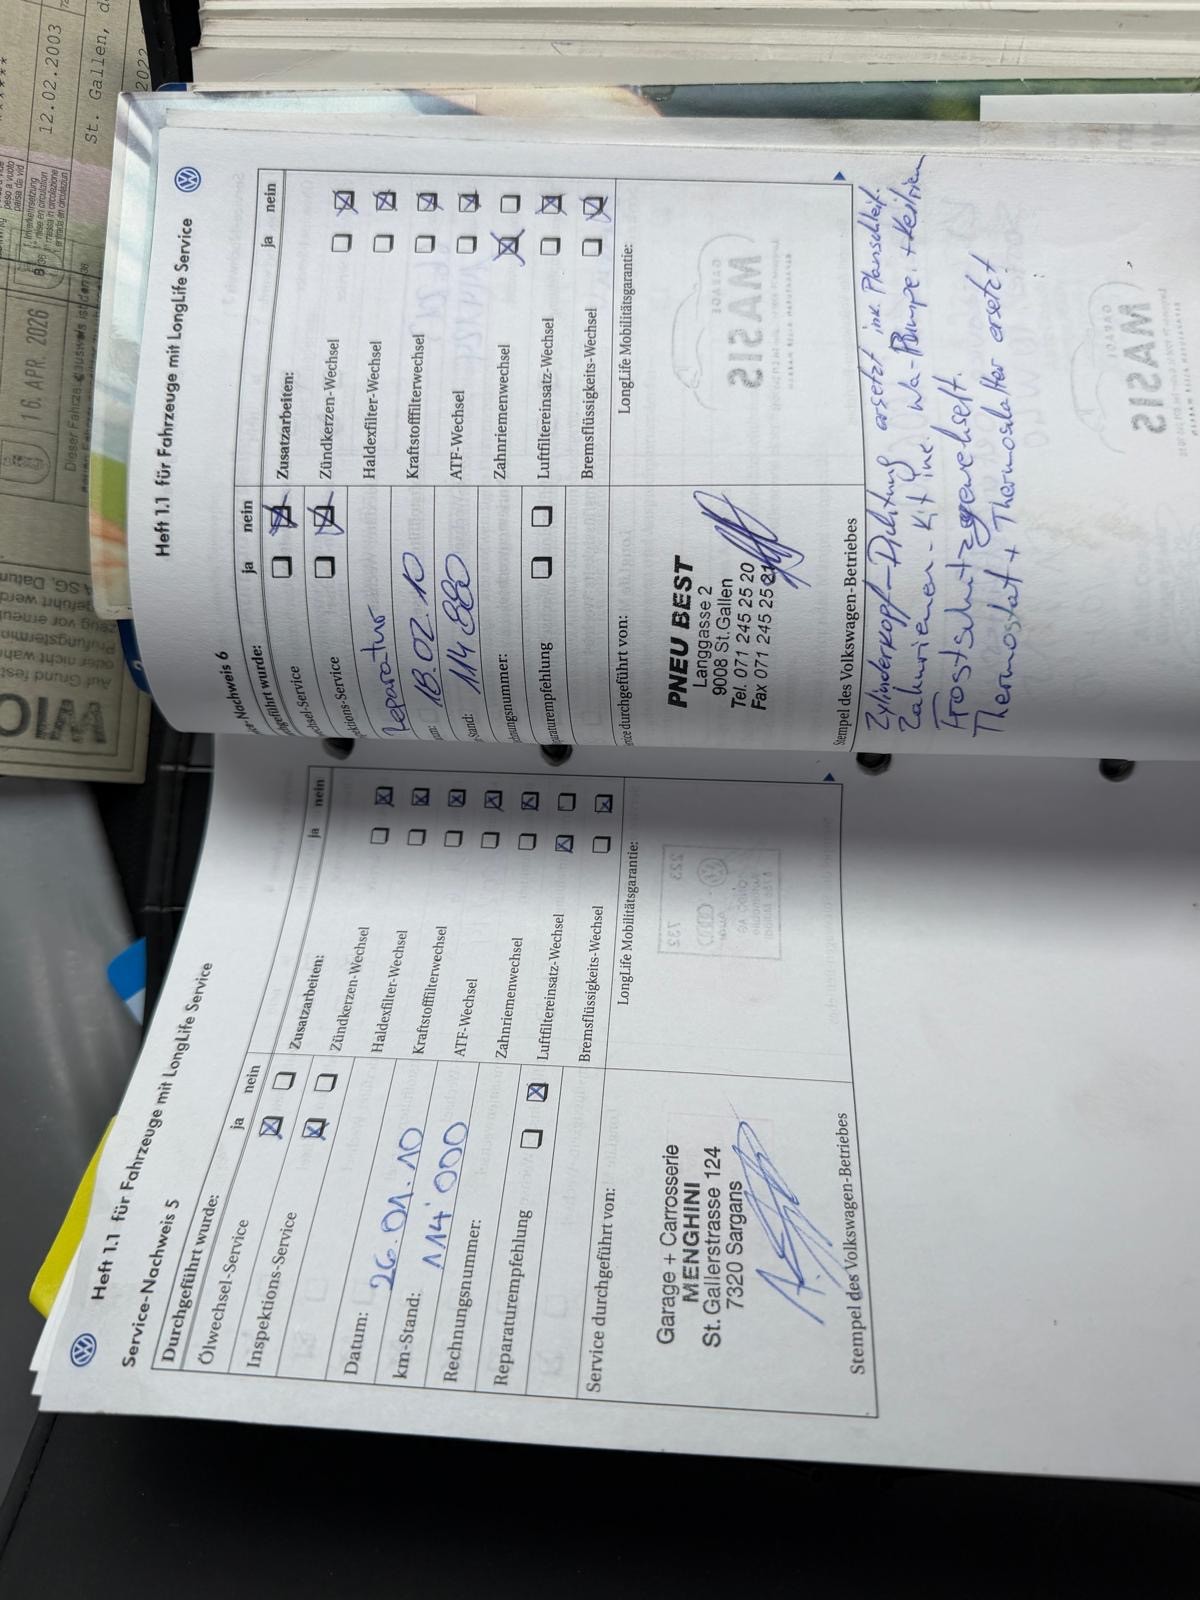 Heft 1.1 für Fahrzeuge mit LongLife Service
Service-Nachweis 5
Durchgeführt wurde:
ja nein
Ölwechsel-Service
Inspektions-Service
Datum:
26.01.10
km-Stand:
114'000
Rechnungsnummer:
Reparaturempfehlung
Service durchgeführt von:
Garage + Carrosserie
MENGHINI
St. Gallerstrasse 124
7320 Sargans
Stempel des Volkswagen-Betriebes
Zusatzarbeiten:
ja nein
Zündkerzen-Wechsel
Haldexfilter-Wechsel
Kraftstofffilterwechsel
ATF-Wechsel
Zahnriemenwechsel
Luftfiltereinsatz-Wechsel
Bremsflüssigkeits-Wechsel
LongLife Mobilitätsgarantie:
Heft 1.1 für Fahrzeuge mit LongLife Service
-Nachweis 6
geführt wurde:
ja nein
hsel-Service
ektions-Service
Reparatur
18.02.10
Stand:
114880
hnungsnummer:
araturempfehlung
vice durchgeführt von:
PNEU BEST
Langgasse 2
9008 St.Gallen
Tel. 071 245 25 20
Fax 071 245 25 21
Stempel des Volkswagen-Betriebes
Zusatzarbeiten:
ja nein
Zündkerzen-Wechsel
Haldexfilter-Wechsel
Kraftstofffilterwechsel
ATF-Wechsel
Zahnriemenwechsel
Luftfiltereinsatz-Wechsel
Bremsflüssigkeits-Wechsel
LongLife Mobilitätsgarantie:
Zylinderkopf-Dichtung ersetzt ink. Planschleif.
Zahnriemen-Kit ink. Wa-Pumpe. + Keilriemen
Frostschutz gewechselt.
Thermostat + Thermoschalter ersetzt
GARAGE
MASIS
GARAGE
MASIS
12.02.2003
St. Gallen, d
16. APR. 2026
Dieser Fahrze
Auf Grund
oder nicht
Prüfungstermin
zeug vor
geführt
SG. Datum